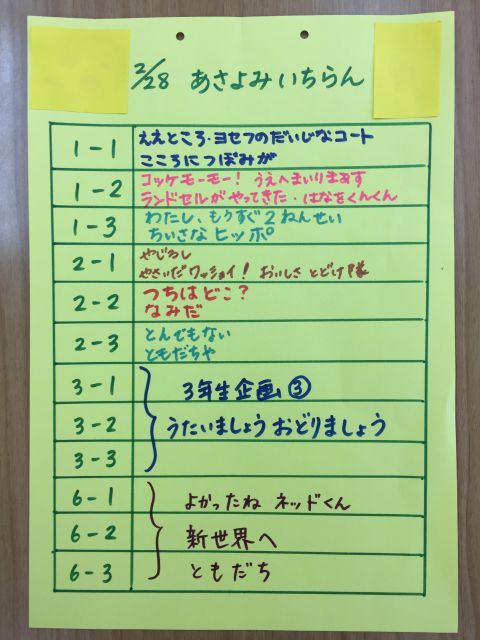 2/28 あさよみいちらん
1-1 ええところ・ヨセフのだいじなコート
こころにつぼみが
1-2 コッケモーモー! うえへまいりまぁす
ランドセルがやってきた・はなをくんくん
1-3 わたし、もうすぐ2ねんせい
ちいさな ヒッポ
2-1 やじるし
やさいだワッショイ! おいしさ とどけ隊
2-2 つちはどこ?
なみだ
2-3 とんでもない
ともだちや
3-1 3年生企画③
3-2 うたいましょう おどりましょう
3-3
6-1 よかったね ネッドくん
6-2 新世界へ
6-3 ともだち